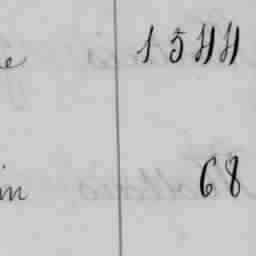 e 1544
in 68